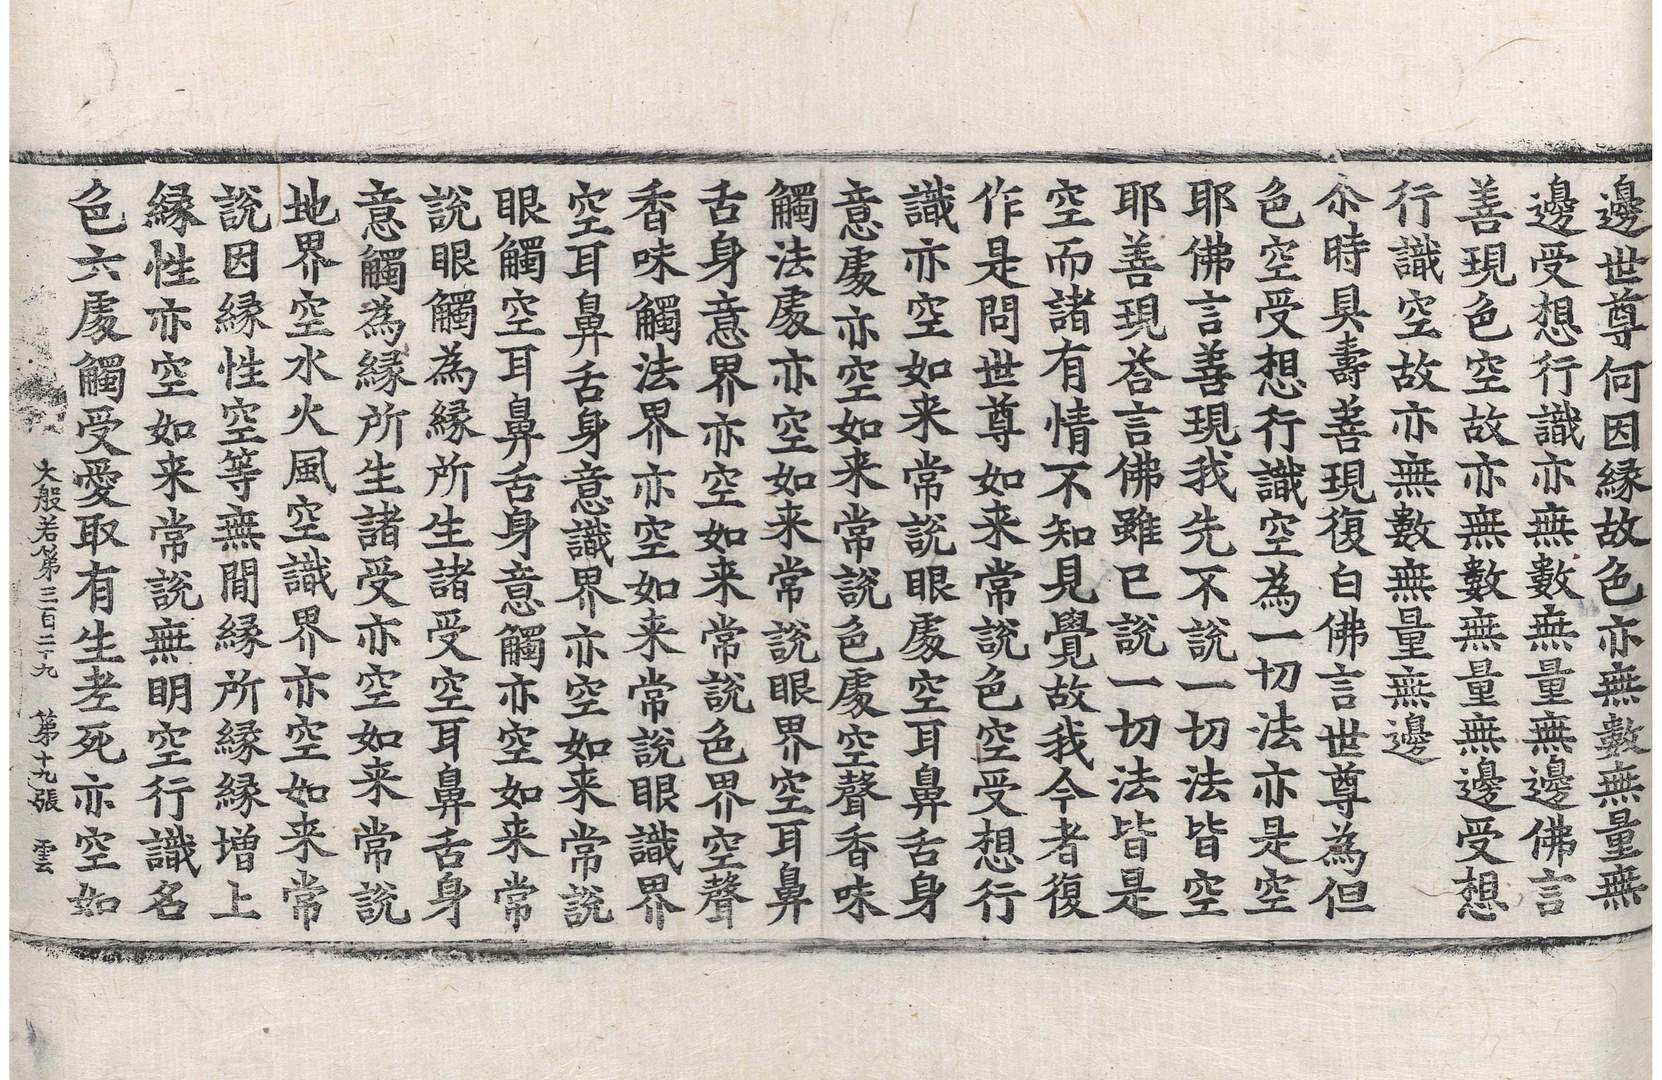 邊世尊何因縁故色亦無數無量無
邊受想行識亦無數無量無邊佛言
善現色空故亦無數無量無邊受想
行識空故亦無數無量無邊
尒時具壽善現復白佛言世尊為但
色空受想行識空為一切法亦是空
耶佛言善現我先不說一切法皆空
耶善現荅言佛雖已說一切法皆是
空而諸有情不知見覺故我今者復
作是問世尊如来常說色空受想行
識亦空如来常說眼處空耳鼻舌身
意處亦空如来常說色處空聲香味
觸法處亦空如来常說眼界空耳鼻
舌身意界亦空如来常說色界空聲
香味觸法界亦空如来常說眼識界
空耳鼻舌身意識界亦空如来常說
眼觸空耳鼻舌身意觸亦空如来常
說眼觸為縁所生諸受空耳鼻舌身
意觸為縁所生諸受亦空如来常說
地界空水火風空識界亦空如来常
說因縁性空等無間縁所縁縁增上
縁性亦空如来常說無明空行識名
色六處觸受愛取有生老死亦空如
大般若第三百二十九 第十九張 雲